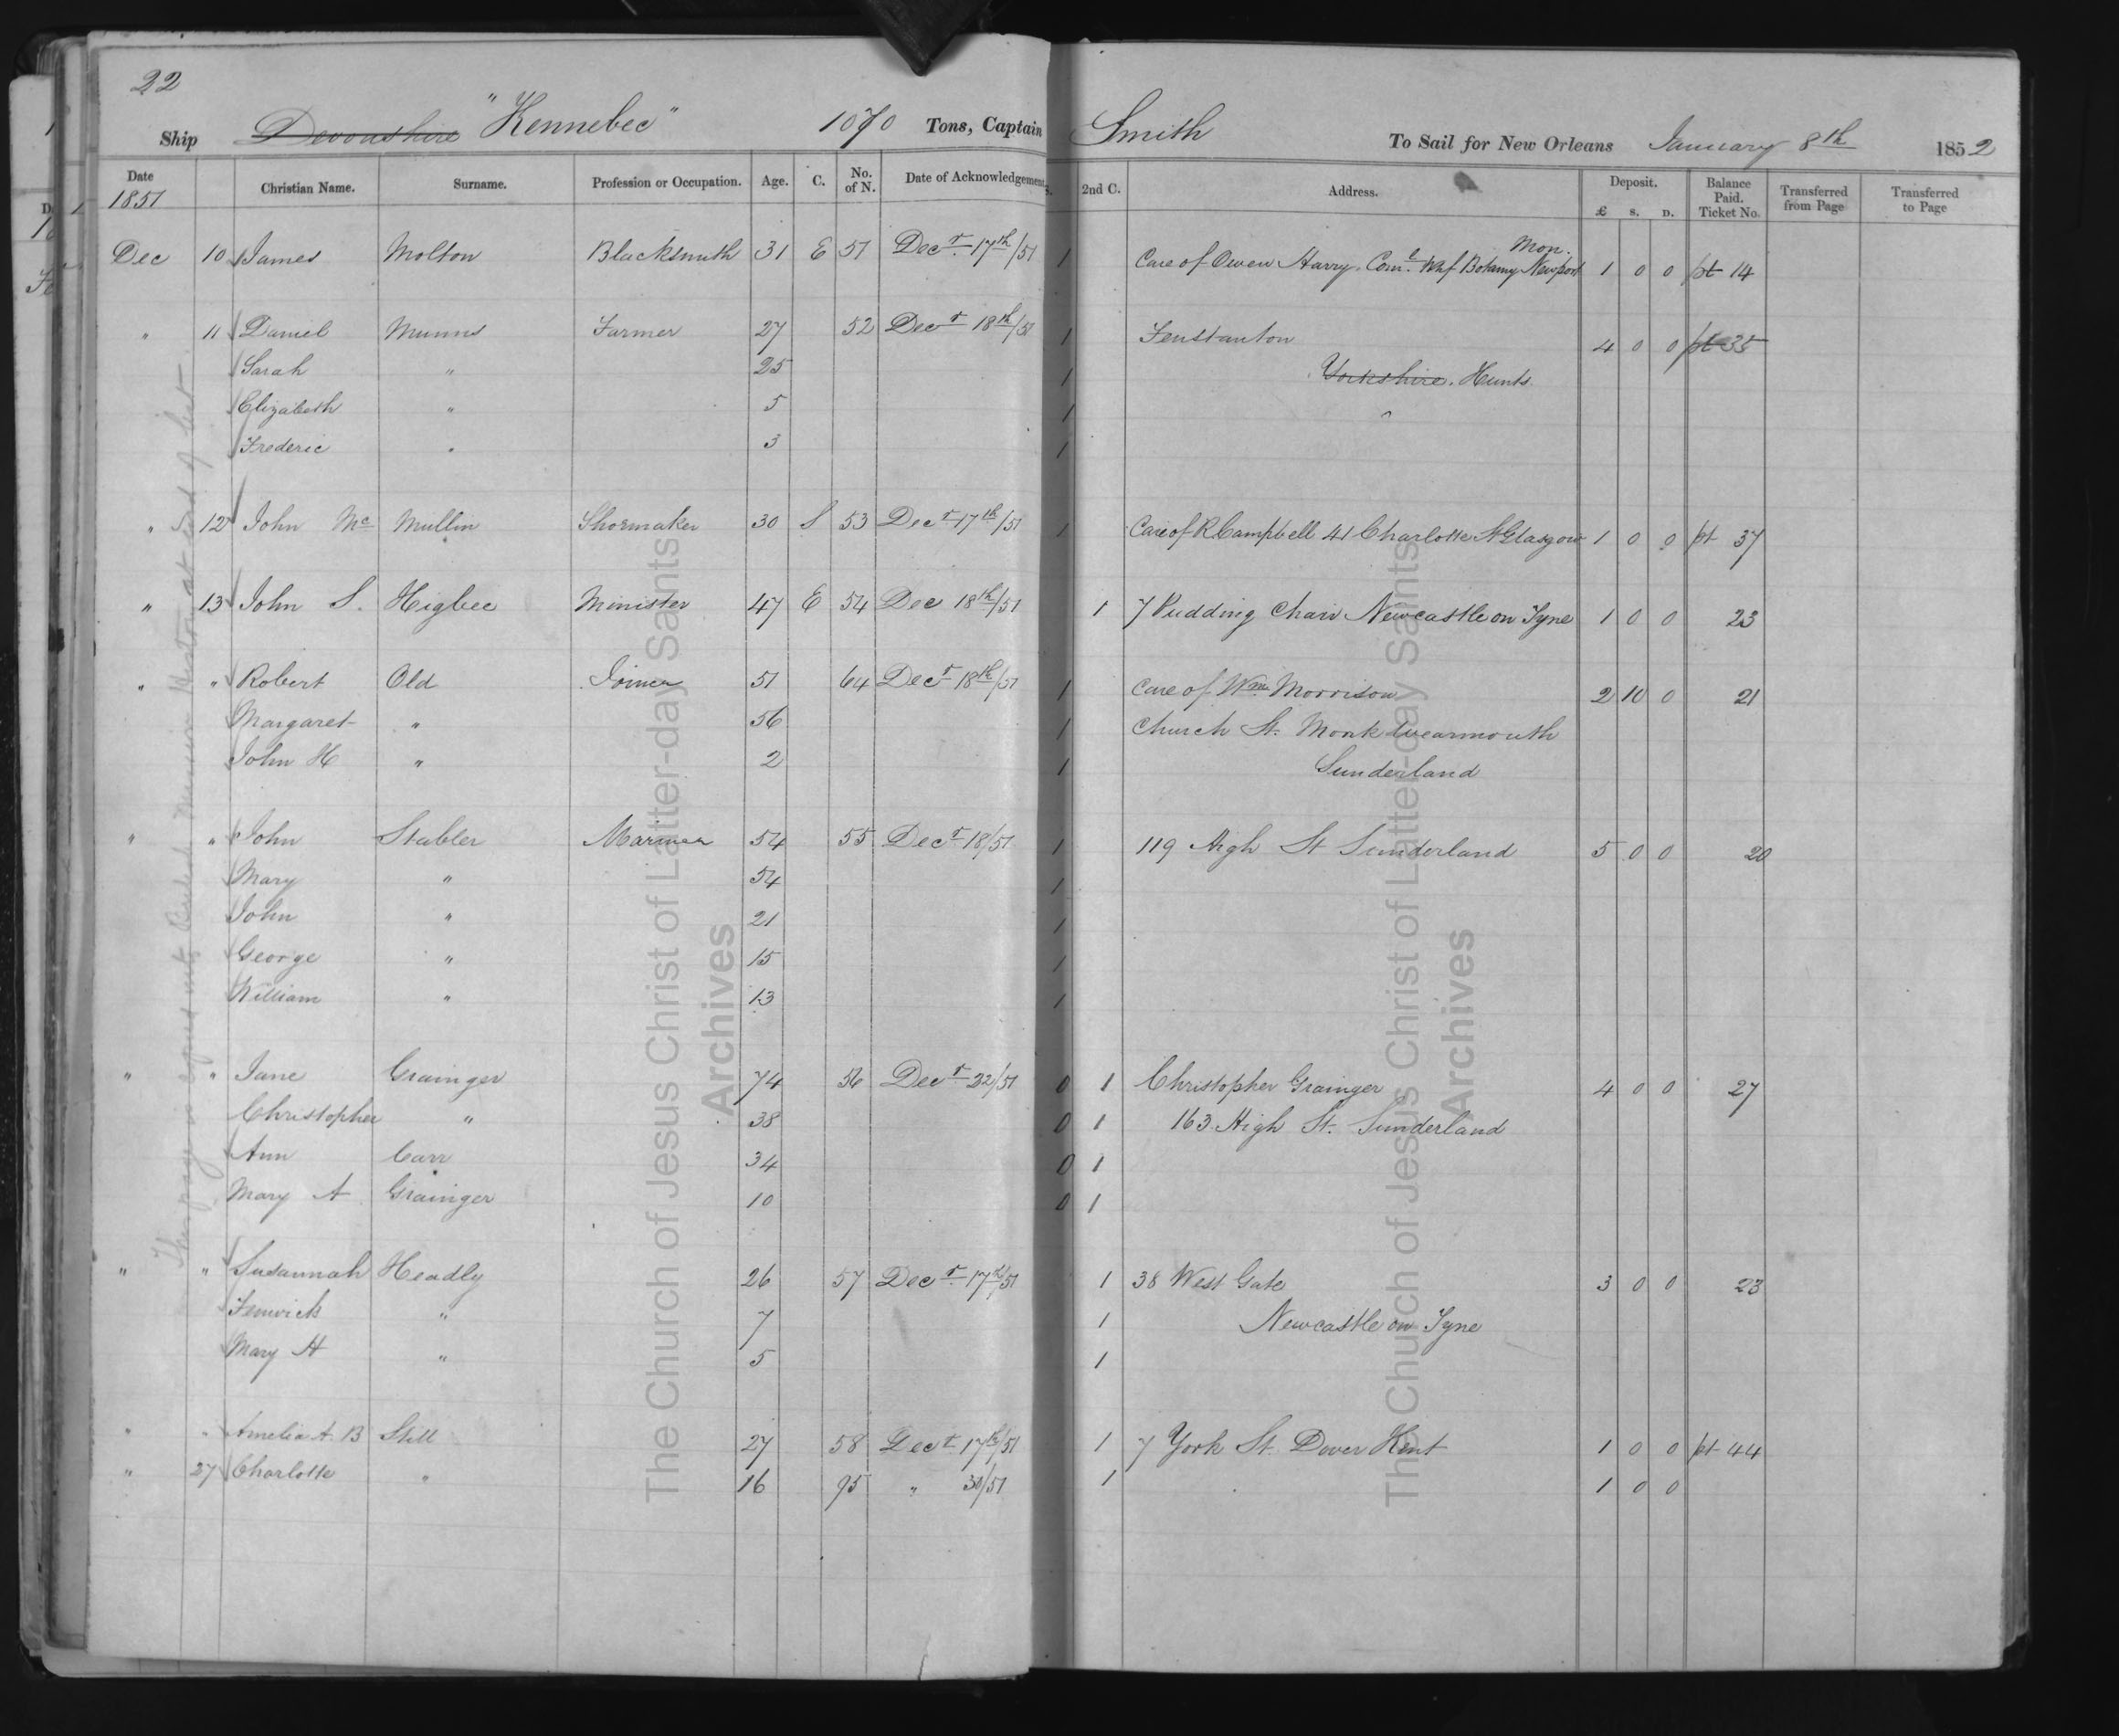 22
Ship Devonshire "Kennebec" 1070 Tons, Captain Smith To Sail for New Orleans January 8th 1852
Date Christian Name. Surname. Profession or Occupation. Age. C. No. of N. Date of Acknowledgement 2nd C. Address. Deposit. £ s. D. Balance Paid. Ticket No. Transferred from Page Transferred to Page
1851
Mon.
Dec 10 James Molton Blacksmith 31 E 51 Decr 17th/51 1 Care of Owen Harry. Botany Newport 1 0 0 pt 14
" 11 Daniel Munns Farmer 27 52 Decr 18th/51 1 Fenstanton 4 0 0 pt 35
Sarah " 25 1 Yorkshire. Hunts.
Elizabeth " 5 1
Frederic " 3 1
" 12 John Mc Mullin Shoemaker 30 S 53 Decr 17th/51 1 Care of R Campbell 41 Charlotte St Glasgow 1 0 0 pt 37
" 13 John S. Higbee Minister 47 E 54 Dec 18th/51 1 7 Pudding Chair Newcastle on Tyne 1 0 0 23
" " Robert Old Joiner 51 64 Decr 18th/51 1 Care of Wm Morrison 2 10 0 21
Margaret " 56 1 Church St. Monkwearmouth
John H " 2 1 Sunderland
" " John Stabler Mariner 54 55 Decr 18/51 1 119 High St Sunderland 5 0 0 20
Mary " 54 1
John " 21 1
George " 15 1
William " 13 1
" " Jane Grainger 74 56 Decr 22/51 0 1 Christopher Grainger 4 0 0 27
Christopher " 38 0 1 163 High St. Sunderland
Ann Carr 34 0 1
Mary A Grainger 10 0 1
" " Susannah Headly 26 57 Decr 17th/51 1 38 West Gate 3 0 0 23
Fenwick " 7 1 Newcastle on Tyne
Mary H " 5 1
" " Amelia A. B Still 27 58 Decr 17th/51 1 7 York St. Dover Kent 1 0 0 pt 44
" 27 Charlotte " 16 95 " 30/51 1 1 0 0
The Church of Jesus Christ of Latter-day Saints
Archives
The Church of Jesus Christ of Latter-day Saints
Archives